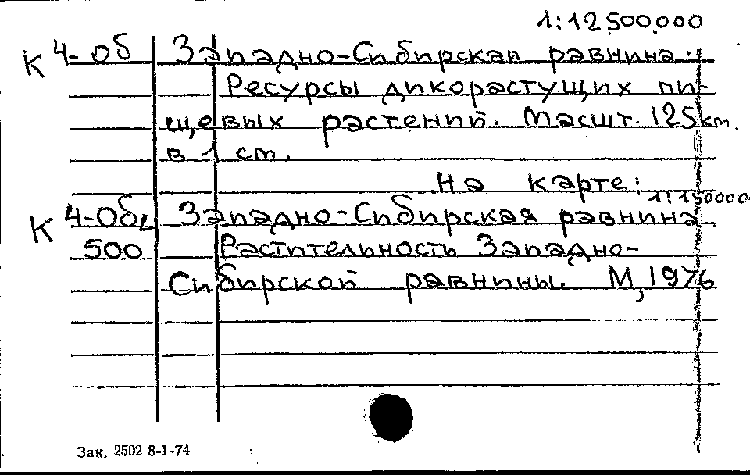 1:12500000
К 4-об Западно-Сибирская равнина.
Ресурсы дикорастущих пи-
щевых растений. Масшт. 125км.
в 1 см.
На карте: 1:1500000
К 4-Об Западно-Сибирская равнина
500 Растительность Западно-
Сибирской равнины. М, 1976
Зак. 2502 8-1-74